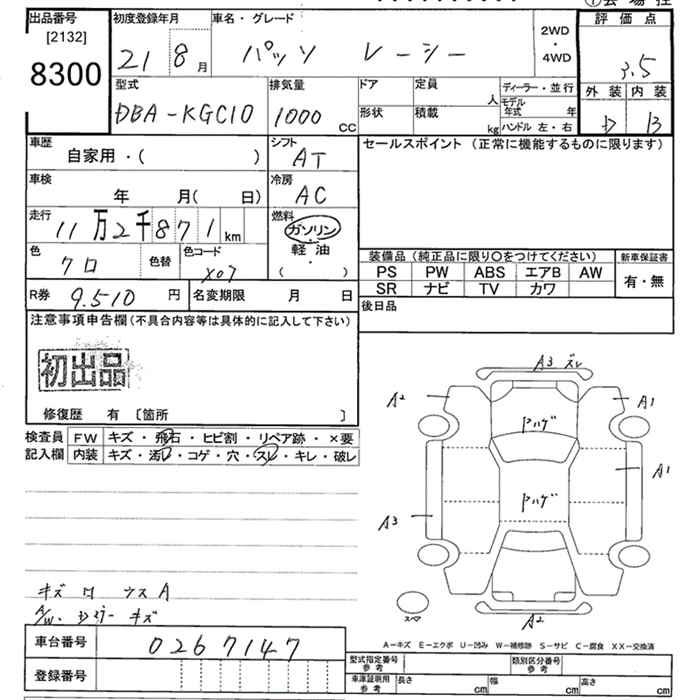 出品番号 初度登録年月 車名・グレード 評価点
[2132]
8300
21 8月 パッソ レーシー 2WD・4WD 3.5
型式 排気量 ドア 定員 人 ディーラー・並行 外装 内装
DBA-KGC10 1000 CC 形状 積載 kg モデル年式 年 ハンドル 左・右 D B
車歴 自家用・( ) シフト AT セールスポイント (正常に機能するものに限ります)
車検 年 月( 日) 冷房 AC
走行 11万2千871 km 燃料 ガソリン・軽油・( )
色 クロ 色替 色コード X07
装備品 (純正品に限り〇をつけてください) 新車保証書
PS PW ABS エアB AW 有・無
SR ナビ TV カワ
R券 9.510 円 名変期限 月 日 後日品
注意事項申告欄 (不具合内容等は具体的に記入して下さい)
初出品
修復歴 有 〔箇所 〕
検査員記入欄 FW キズ・飛石・ヒビ割・リペア跡・×要
内装 キズ・汚レ・コゲ・穴・スレ・キレ・破レ
A3 スレ
A2 A1
ドハゲ
A1
ドハゲ
A3
スペア A2
A/W.
キズ
A-キズ E-エクボ U-凹み W-補修跡 S-サビ C-腐食 XX-交換済
車台番号 0267147
型式指定番号参考 類別区分番号参考
登録番号 車庫証明用参考 長さ cm 幅 cm 高さ cm